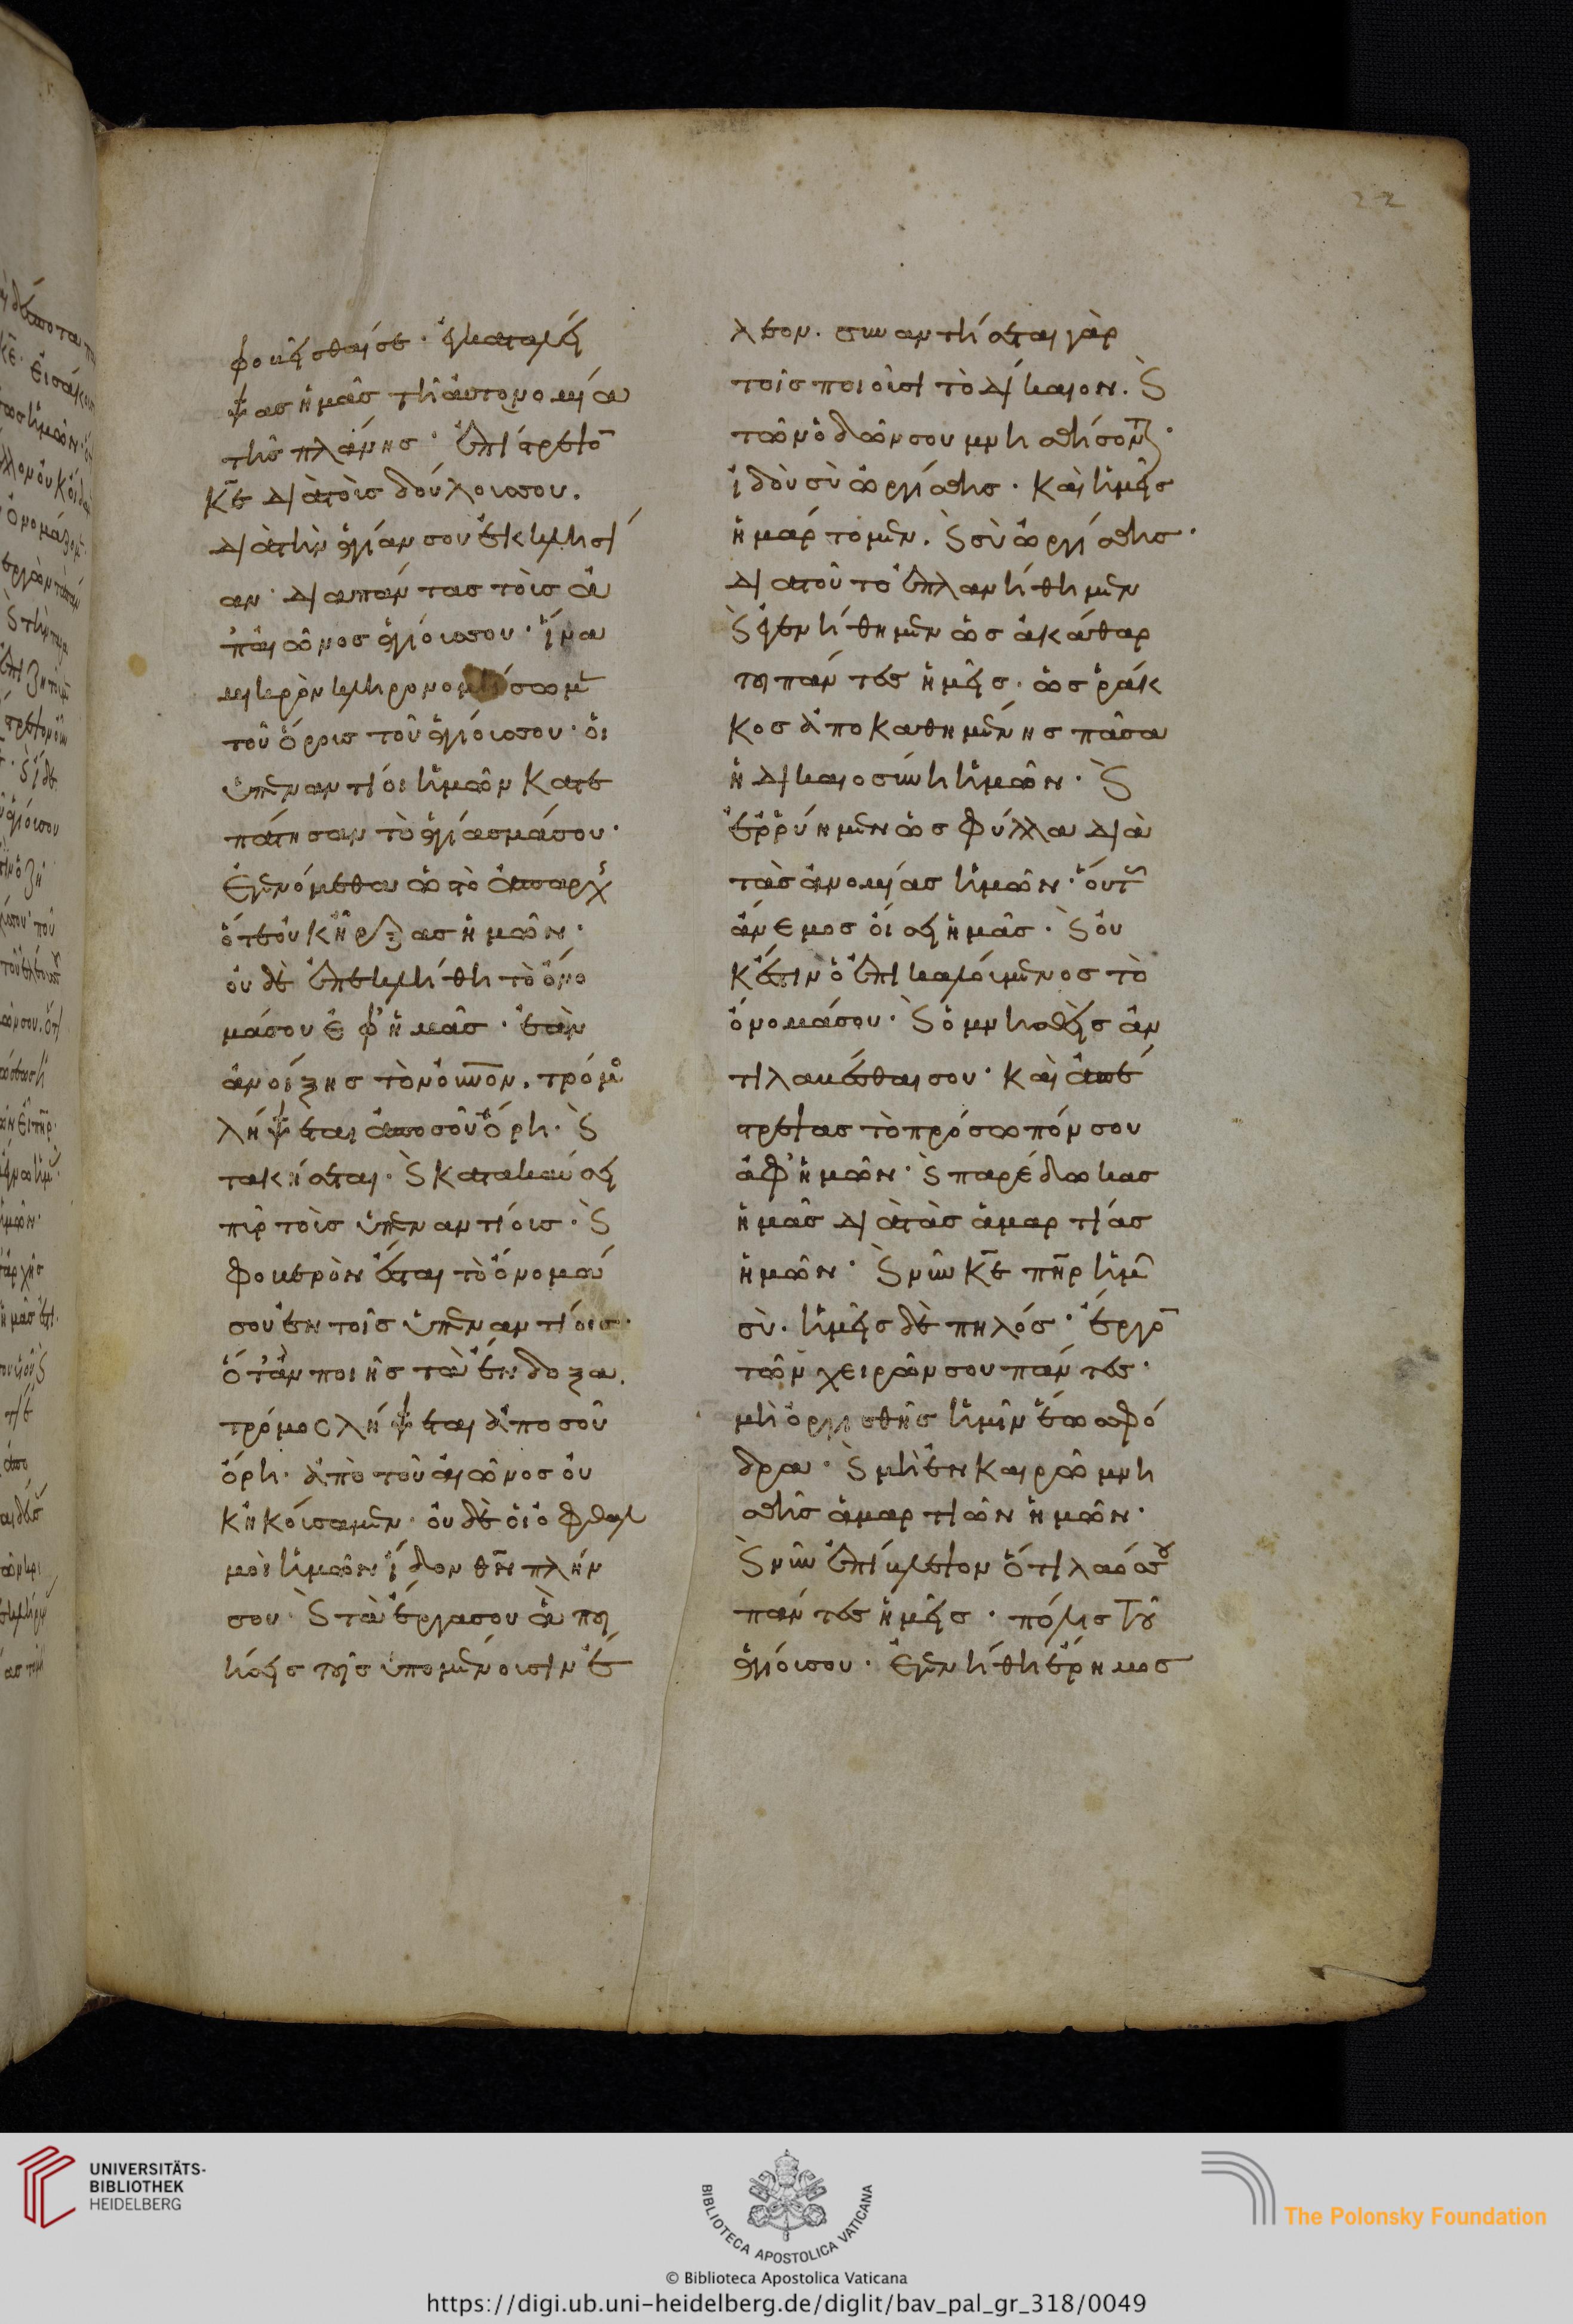 φοβεῖσθαί σε· ἐγκαταλεί
ψας ἡμᾶς τῆ ἀυτονομία
τῆς πλάνης· ἐπίστρεψον
κε διὰ τοὺς δούλους σου.
διὰ τὴν ἁγίαν σου ἐκκλησί
αν· διὰ πάντας τοὺς ἀ
π' αἰῶνος ἁγίους σου· ἵνα
μικρὸν κληρονομήσωμεν
τοῦ ὄρους τοῦ ἁγίου σου· οἱ
ὑπεναντίοι ἡμῶν κατε
πάτησαν τὸ ἁγίασμά σου·
ἐγενόμεθα ὡς τὸ ἀπαρχῆς
ὅτε οὐκ ἦρξας ἡμῶν·
οὐδὲ ἐπεκλήθη τὸ ὄνο
μά σου ἐφ' ἡμᾶς· ἐὰν
ἀνοίξης τὸν οὐνον. τρόμος
λήψεται ἀπὸ σοῦ ὄρη· καὶ
τακήσεται· καὶ κατακαύσει
πῦρ τοὺς ὑπεναντίους· καὶ
φοβερὸν ἔσται τὸ ὄνομά
σου ἐν τοῖς ὑπεναντίοις·
ὅτὰν ποιῆς τὰ ἔνδοξα.
τρόμος λήψεται ἀπὸ σοῦ
ὄρη· ἀπὸ τοῦ αἰῶνος οὐ
κ ἠκούσαμεν· οὐδὲ οἱ ὀφθαλ
μοὶ ἡμῶν ἴδον θν πλήν
σου· καὶ τὰ ἔργα σου ἃ ποι
ήσεις τοῖς ὑπομένουσιν ἔ
λεον. συναντήσεται γὰρ
τοῖς ποιοῦσι τὸ δίκαιον. καὶ
τῶν ὁδῶν σου μνησθήσονται·
ἰδοὺ σὺ ὠργίσθης· καὶ ἡμεῖς
ἡμάρτομεν. καὶ σὺ ὠργίσθης·
διὰ τοῦτο ἐπλανήθημεν
καὶ ἐγενήθημεν ὡς ἀκάθαρ
τοι πάντες ἡμεῖς· ὡς ῥάκ
κος ἀποκαθημένης πᾶσα
ἡ δικαιοσύνη ἡμῶν· καὶ
ἐρρύημεν ὡς φύλλα διὰ
τὰς ἀνομίας ἡμῶν· οὕτως
ἄνεμος οἴσει ἡμᾶς· καὶ οὐ
κ ἔστιν ὁ ἐπικαλούμενος τὸ
ὄνομά σου· καὶ ὁ μνησθεὶς ἀν
τιλαβέσθαι σου· καὶ ἀπέ
στρεψας τὸ πρόσωπόν σου
ἀφ' ἡμῶν· καὶ παρέδωκας
ἡμᾶς διὰ τὰς ἁμαρτίας
ἡμῶν· καὶ νῦν κε πηρ ἡμῶν
σύ. ἡμεῖς δὲ πηλός· ἔργον
τῶν χειρῶν σου πάντες·
μὴ ὀργισθῆς ἡμῖν ἕως σφό
δρα· καὶ μὴ ἐν καιρῶ μνη
σθῆς ἁμαρτιῶν ἡμῶν·
καὶ νῦν ἐπίβλεψον ὅτι λαός σου
πάντες ἡμεῖς· πόλις τοῦ
ἁγίου σου· ἐγενήθη ἔρημος
22
UNIVERSITÄTS-
BIBLIOTHEK
HEIDELBERG
BIBLIOTECA APOSTOLICA VATICANA
The Polonsky Foundation
© Biblioteca Apostolica Vaticana
https://digi.ub.uni-heidelberg.de/diglit/bav_pal_gr_318/0049